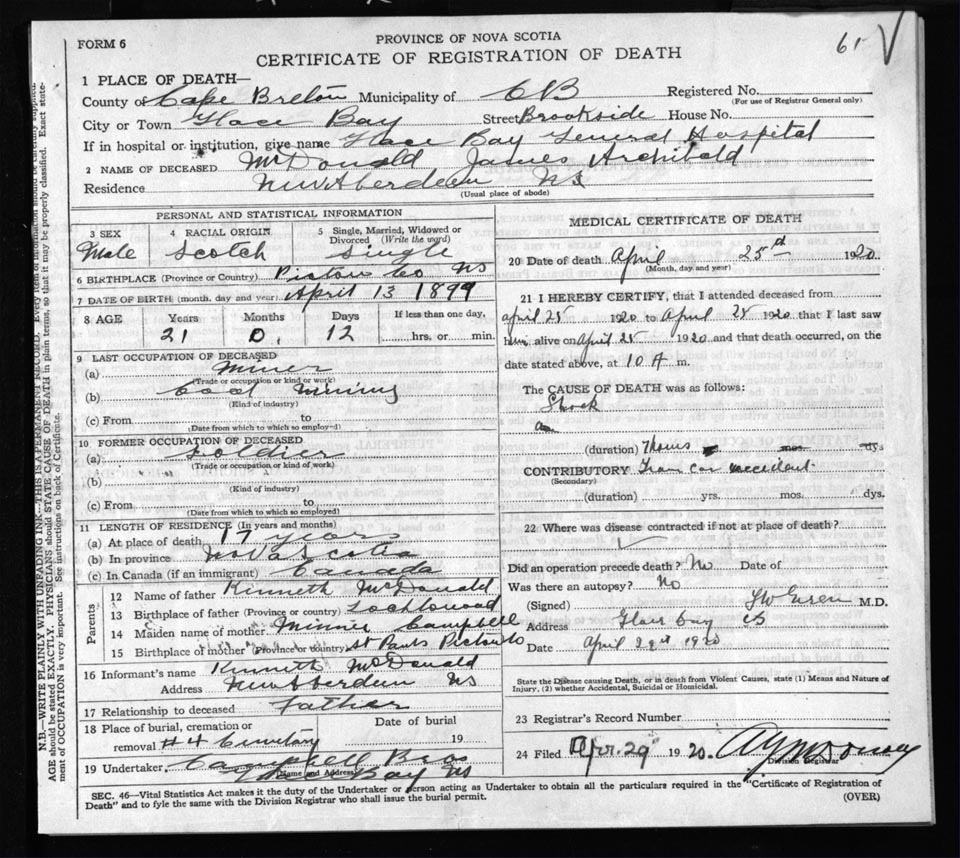 61
FORM 6
PROVINCE OF NOVA SCOTIA
CERTIFICATE OF REGISTRATION OF DEATH
1 PLACE OF DEATH—
County of Cape Breton Municipality of CB Registered No.
(For use of Registrar General only)
City or Town Glace Bay Street Brookside House No.
If in hospital or institution, give name Glace Bay General Hospital
2 NAME OF DECEASED McDonald James Archibald
Residence New Aberdeen NS
(Usual place of abode)
PERSONAL AND STATISTICAL INFORMATION
3 SEX 4 RACIAL ORIGIN 5 Single, Married, Widowed or Divorced (Write the word)
Male Scotch Single
6 BIRTHPLACE (Province or Country) Pictou Co NS
7 DATE OF BIRTH (month, day and year) April 13 1899
8 AGE Years Months Days If less than one day,
21 0. 12 hrs. or min.
9 LAST OCCUPATION OF DECEASED
(a) Miner
(Trade or occupation or kind of work)
(b) Coal Mining
(Kind of industry)
(c) From to
(Date from which to which so employed)
10 FORMER OCCUPATION OF DECEASED
(a) Soldier
(Trade or occupation or kind of work)
(b)
(Kind of industry)
(c) From to
(Date from which to which so employed)
11 LENGTH OF RESIDENCE (In years and months)
(a) At place of death 17 years
(b) In province Nova Scotia
(c) In Canada (if an immigrant) Canada
Parents
12 Name of father Kenneth McDonald
13 Birthplace of father (Province or country)
14 Maiden name of mother Minnie Campbell
15 Birthplace of mother (Province or country) St Pauls Pictou
16 Informant's name Kenneth McDonald
Address New Aberdeen NS
17 Relationship to deceased Father
18 Place of burial, cremation or Date of burial
removal #4 Cemetery 19
19 Undertaker. Campbell Bros
(Name and Address) Bay NS
MEDICAL CERTIFICATE OF DEATH
20 Date of death April 25th 1920
(Month, day and year)
21 I HEREBY CERTIFY, that I attended deceased from
April 25 1920 to April 25 1920 that I last saw
him alive on April 25 1920 and that death occurred, on the
date stated above, at 10 A m.
The CAUSE OF DEATH was as follows:
Shock
(duration) 7 hours dys.
CONTRIBUTORY Tram car accident
(Secondary)
(duration) yrs. mos. dys.
22 Where was disease contracted if not at place of death?
Did an operation precede death? No Date of
Was there an autopsy? No
(Signed) M.D.
Address Glace Bay CB
Date April 29th 1920
State the Disease causing Death, or in death from Violent Causes, state (1) Means and Nature of
Injury, (2) whether Accidental, Suicidal or Homicidal.
23 Registrar's Record Number
24 Filed Apr. 29 1920.
Division Registrar
SEC. 46—Vital Statistics Act makes it the duty of the Undertaker or person acting as Undertaker to obtain all the particulars required in the "Certificate of Registration of
Death" and to fyle the same with the Division Registrar who shall issue the burial permit.
(OVER)
N.B.—WRITE PLAINLY WITH UNFADING INK—THIS IS A PERMANENT RECORD. Every item of information should be carefully supplied.
AGE should be stated EXACTLY. PHYSICIANS should STATE CAUSE OF DEATH in plain terms, so that it may be properly classified. Exact state-
ment of OCCUPATION is very important. See instructions on back of Certificate.